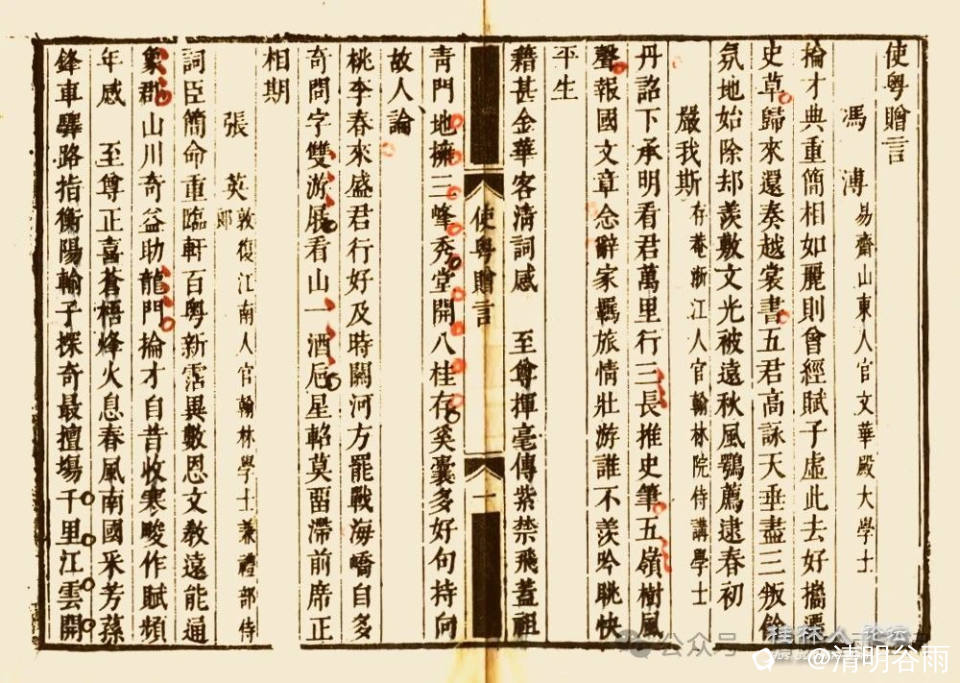 使粵贈言
馮溥 易齋山東人官文華殿大學士
掄才典重簡相如麗則曾經賦子虛此去好攜遷
史草歸來還奏越裳書五君高詠天垂盡三叛餘
氛地始除却羨敷文光被遠秋風鶚薦逮春初
嚴我斯 存菴浙江人官翰林院侍講學士
丹詔下承明看君萬里行三長推史筆五嶺樹風
聲報國文章念辭家羈旅情壯游誰不羨吟眺快
平生
藉甚金華客清詞感 至尊揮毫傳紫禁飛蓋祖
使粵贈言 一
青門地擁三峰秀堂開八桂存奚囊多好句持向
故人論
桃李春來盛君行好及時關河方罷戰海嶠自多
奇問字雙游屐看山一酒卮星軺莫畱滯前席正
相期
張英 敦復江南人官翰林學士兼禮部侍
郎
詞臣簡命重臨軒百粵新霑異數恩文教遠能通
象郡山川奇益助龍門掄才自昔收寒畯作賦頻
年感 至尊正喜蒼梧烽火息春風南國采芳蓀
鋒車驛路指衡陽輸子探奇最擅塲千里江雲開
公众号
桂林人论坛
@清明谷雨